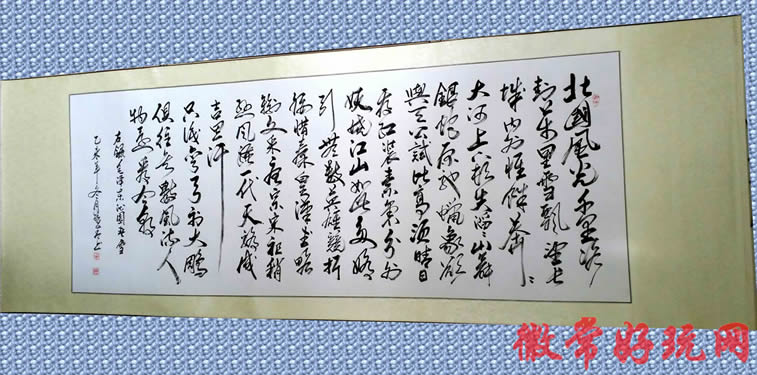 北國風光千里冰
封萬里雪飄望長
城内外惟餘莽〻
大河上下頓失滔〻山舞
銀蛇原馳蠟象欲
與天公試比高須晴日
看紅裝素裹分外
妖嬈江山如此多嬌
引無數英雄競折
腰惜秦皇漢武略
輸文采唐宗宋祖稍
遜風騷一代天驕成
吉思汗
只識彎弓射大鵰
俱往矣數風流人
物還看今朝
右錄毛澤東沁園春雪
乙未年冬月
徽常好玩网